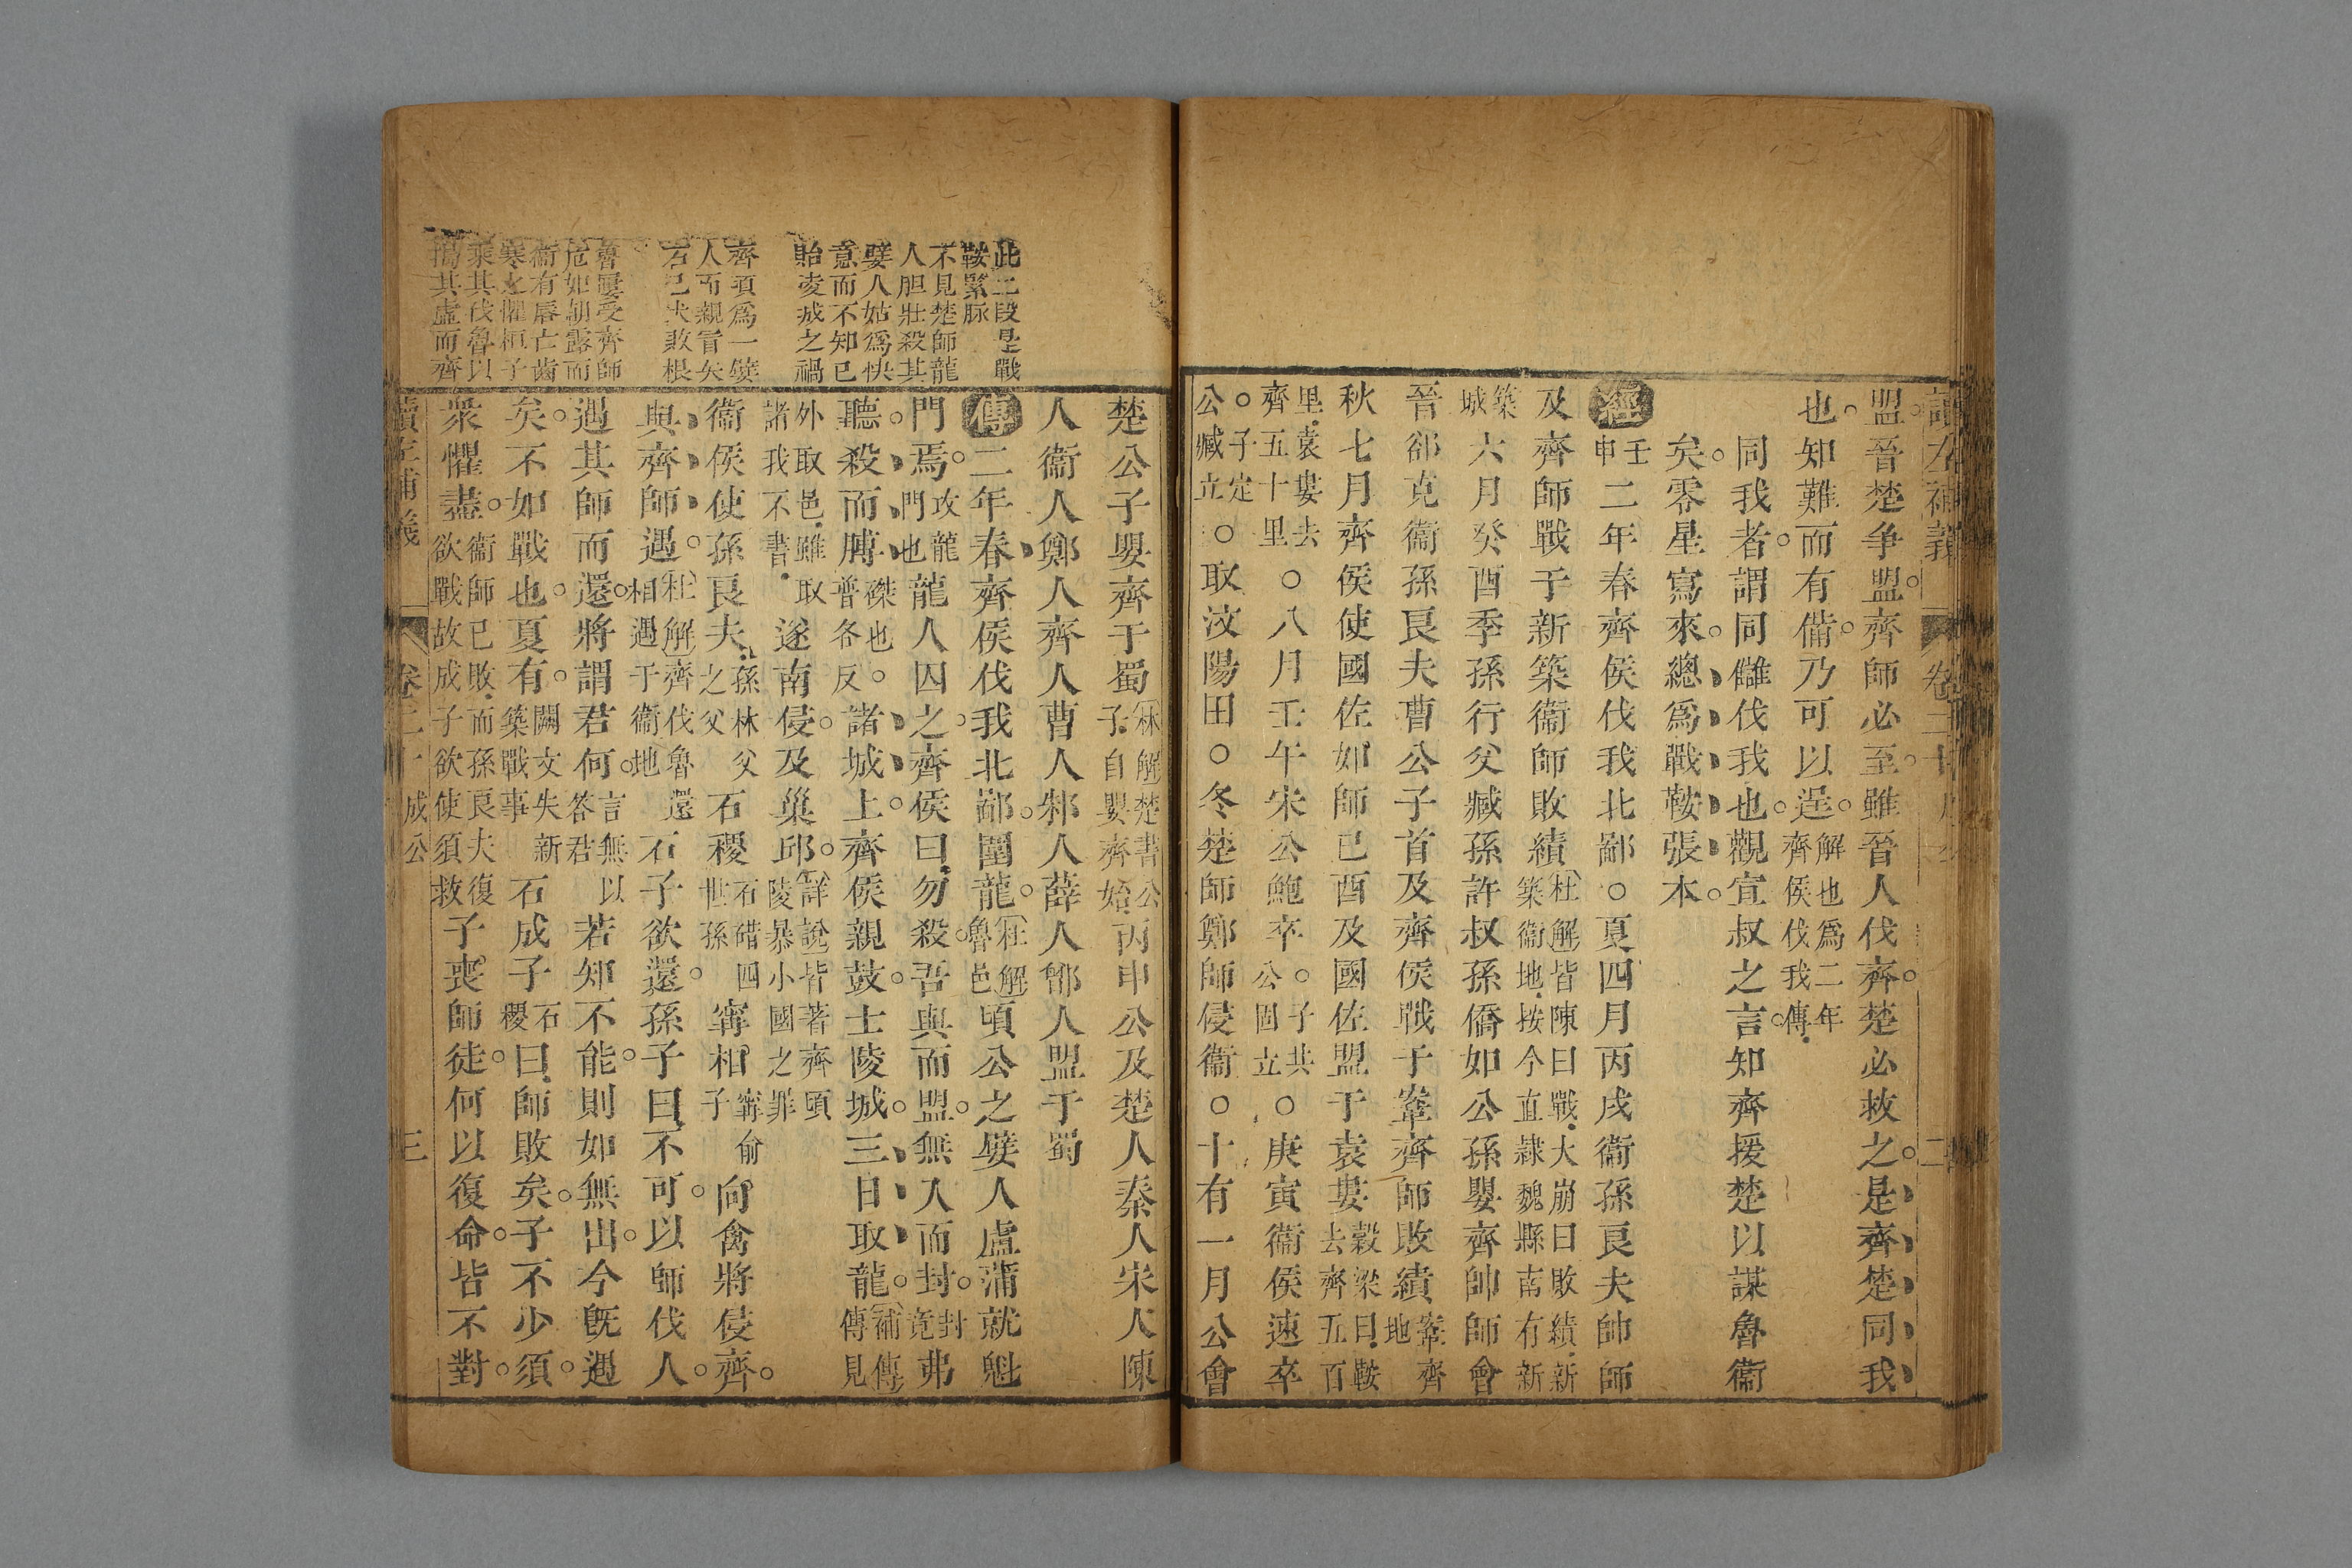 讀左補義 卷二十 成公 二
盟晉楚争盟齊師必至雖晉人伐齊楚必救之是齊楚同我
也知難而有備乃可以逞解也爲二年齊侯伐我傳
同我者謂同讎伐我也觀宣叔之言知齊援楚以謀魯衞
矣零星寫來總爲戰鞍張本
經壬申二年春齊侯伐我北鄙○夏四月丙戌衞孫良夫帥師
及齊師戰于新築衞師敗績杜解皆陳曰戰大崩曰敗績新築衞地按今直隷魏縣南有新
築城六月癸酉季孫行父臧孫許叔孫僑如公孫嬰齊帥師會
晉郤克衞孫良夫曹公子首及齊侯戰于鞌齊師敗績鞌齊地
秋七月齊侯使國佐如師己酉及國佐盟于袁婁穀梁曰鞍去齊五百
里袁婁去齊五十里○八月壬午宋公鮑卒子共公固立○庚寅衞侯速卒
子定公臧立○取汶陽田○冬楚師鄭師侵衞○十有一月公會
楚公子嬰齊于蜀林解楚書公子自嬰齊始丙申公及楚人秦人宋人陳
人衞人鄭人齊人曹人邾人薛人鄫人盟于蜀
傳二年春齊侯伐我北鄙圍龍杜解魯邑頃公之嬖人盧蒲就魁
門焉攻龍門也龍人囚之齊侯曰勿殺吾與而盟無入而封封竟弗
聽殺而膊磔也普各反諸城上齊侯親鼓士陵城三日取龍補傳傳見
外取邑雖取諸我不書遂南侵及巢邱詳說皆著齊頃陵暴小國之罪
衞侯使孫良夫孫林父之父石稷石碏四世孫甯相甯俞子向禽將侵齊
與齊師遇杜解齊伐魯還相遇于衞地石子欲還孫子曰不可以師伐人
遇其師而還將謂君何言無以答君若知不能則如無出今旣遇
矣不如戰也夏有闕文失新築戰事石成子石稷曰師敗矣子不少須
衆懼盡衞師已敗而孫良夫復欲戰故成子欲使須救子喪師徒何以復命皆不對
讀左補義 卷二十 成公 三
此二段是戰
鞍緊脉
不見楚師龍
人胆壯殺其
嬖人姑爲快
意而不知已
貽凌城之禍
齊頃爲一嬖
人而親冒矢
石已失敗根
魯屢受齊師
危如朝露而
衞有唇亡齒
寒之懼桓子
乘其伐魯以
搗其虛而齊